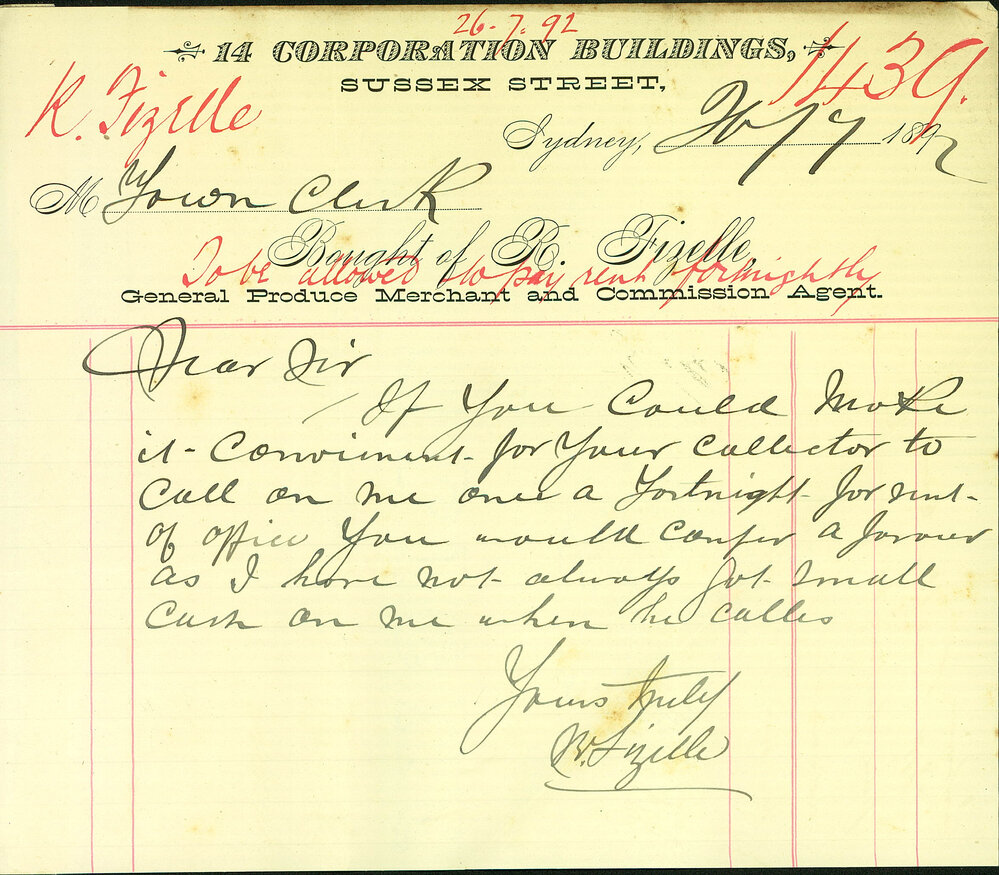 26.7.92
14 CORPORATION BUILDINGS,
1439.
SUSSEX STREET,
R. Fizelle
Sydney, 26/7 1892
M Town Clerk
Bought of R. Fizelle,
To be allowed to pay rent fortnightly
General Produce Merchant and Commission Agent.
Dear Sir
If You Could Make
it Convinient for Your Collector to
Call on me once a Fortnight for rent
of office You would Confer a favour
as I have not always got small
Cash on me when he calles
Yours truly
R. Fizelle